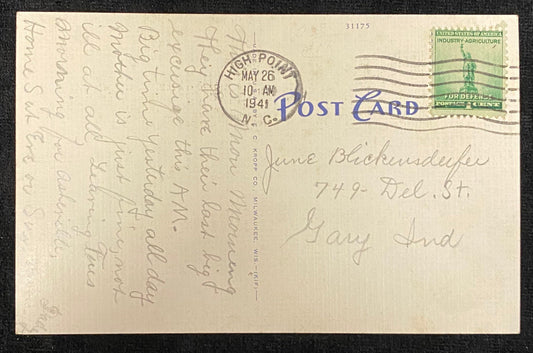 31175
UNITED STATES OF AMERICA
INDUSTRY-AGRICULTURE
FOR DEFENSE
POSTAGE 1 CENT
HIGH POINT
MAY 26
10 AM
1941
N. C.
POST CARD
June Blickensderfer
749- Del. St.
Gary Ind
C. KROPP CO., MILWAUKEE, WIS.
This is Mon Morning
They have their last big
excursion this A.M.
Big time yesterday all day
Mother is just fine, not
ill at all. Leaving Tues
morning for Asheville,
Home Sat Eve or Sun
Dad